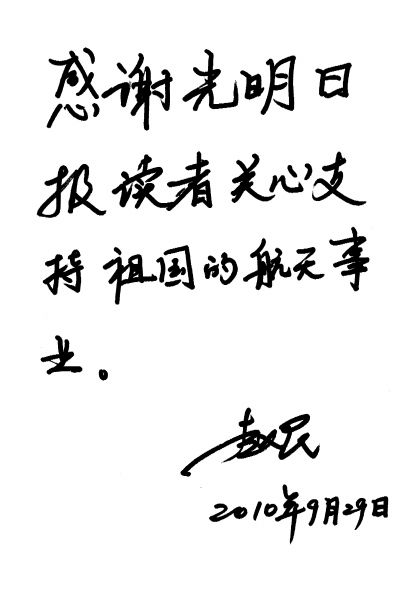 感谢光明日
报读者关心支
持祖国的航天事
业。
赵民
2010年9月29日